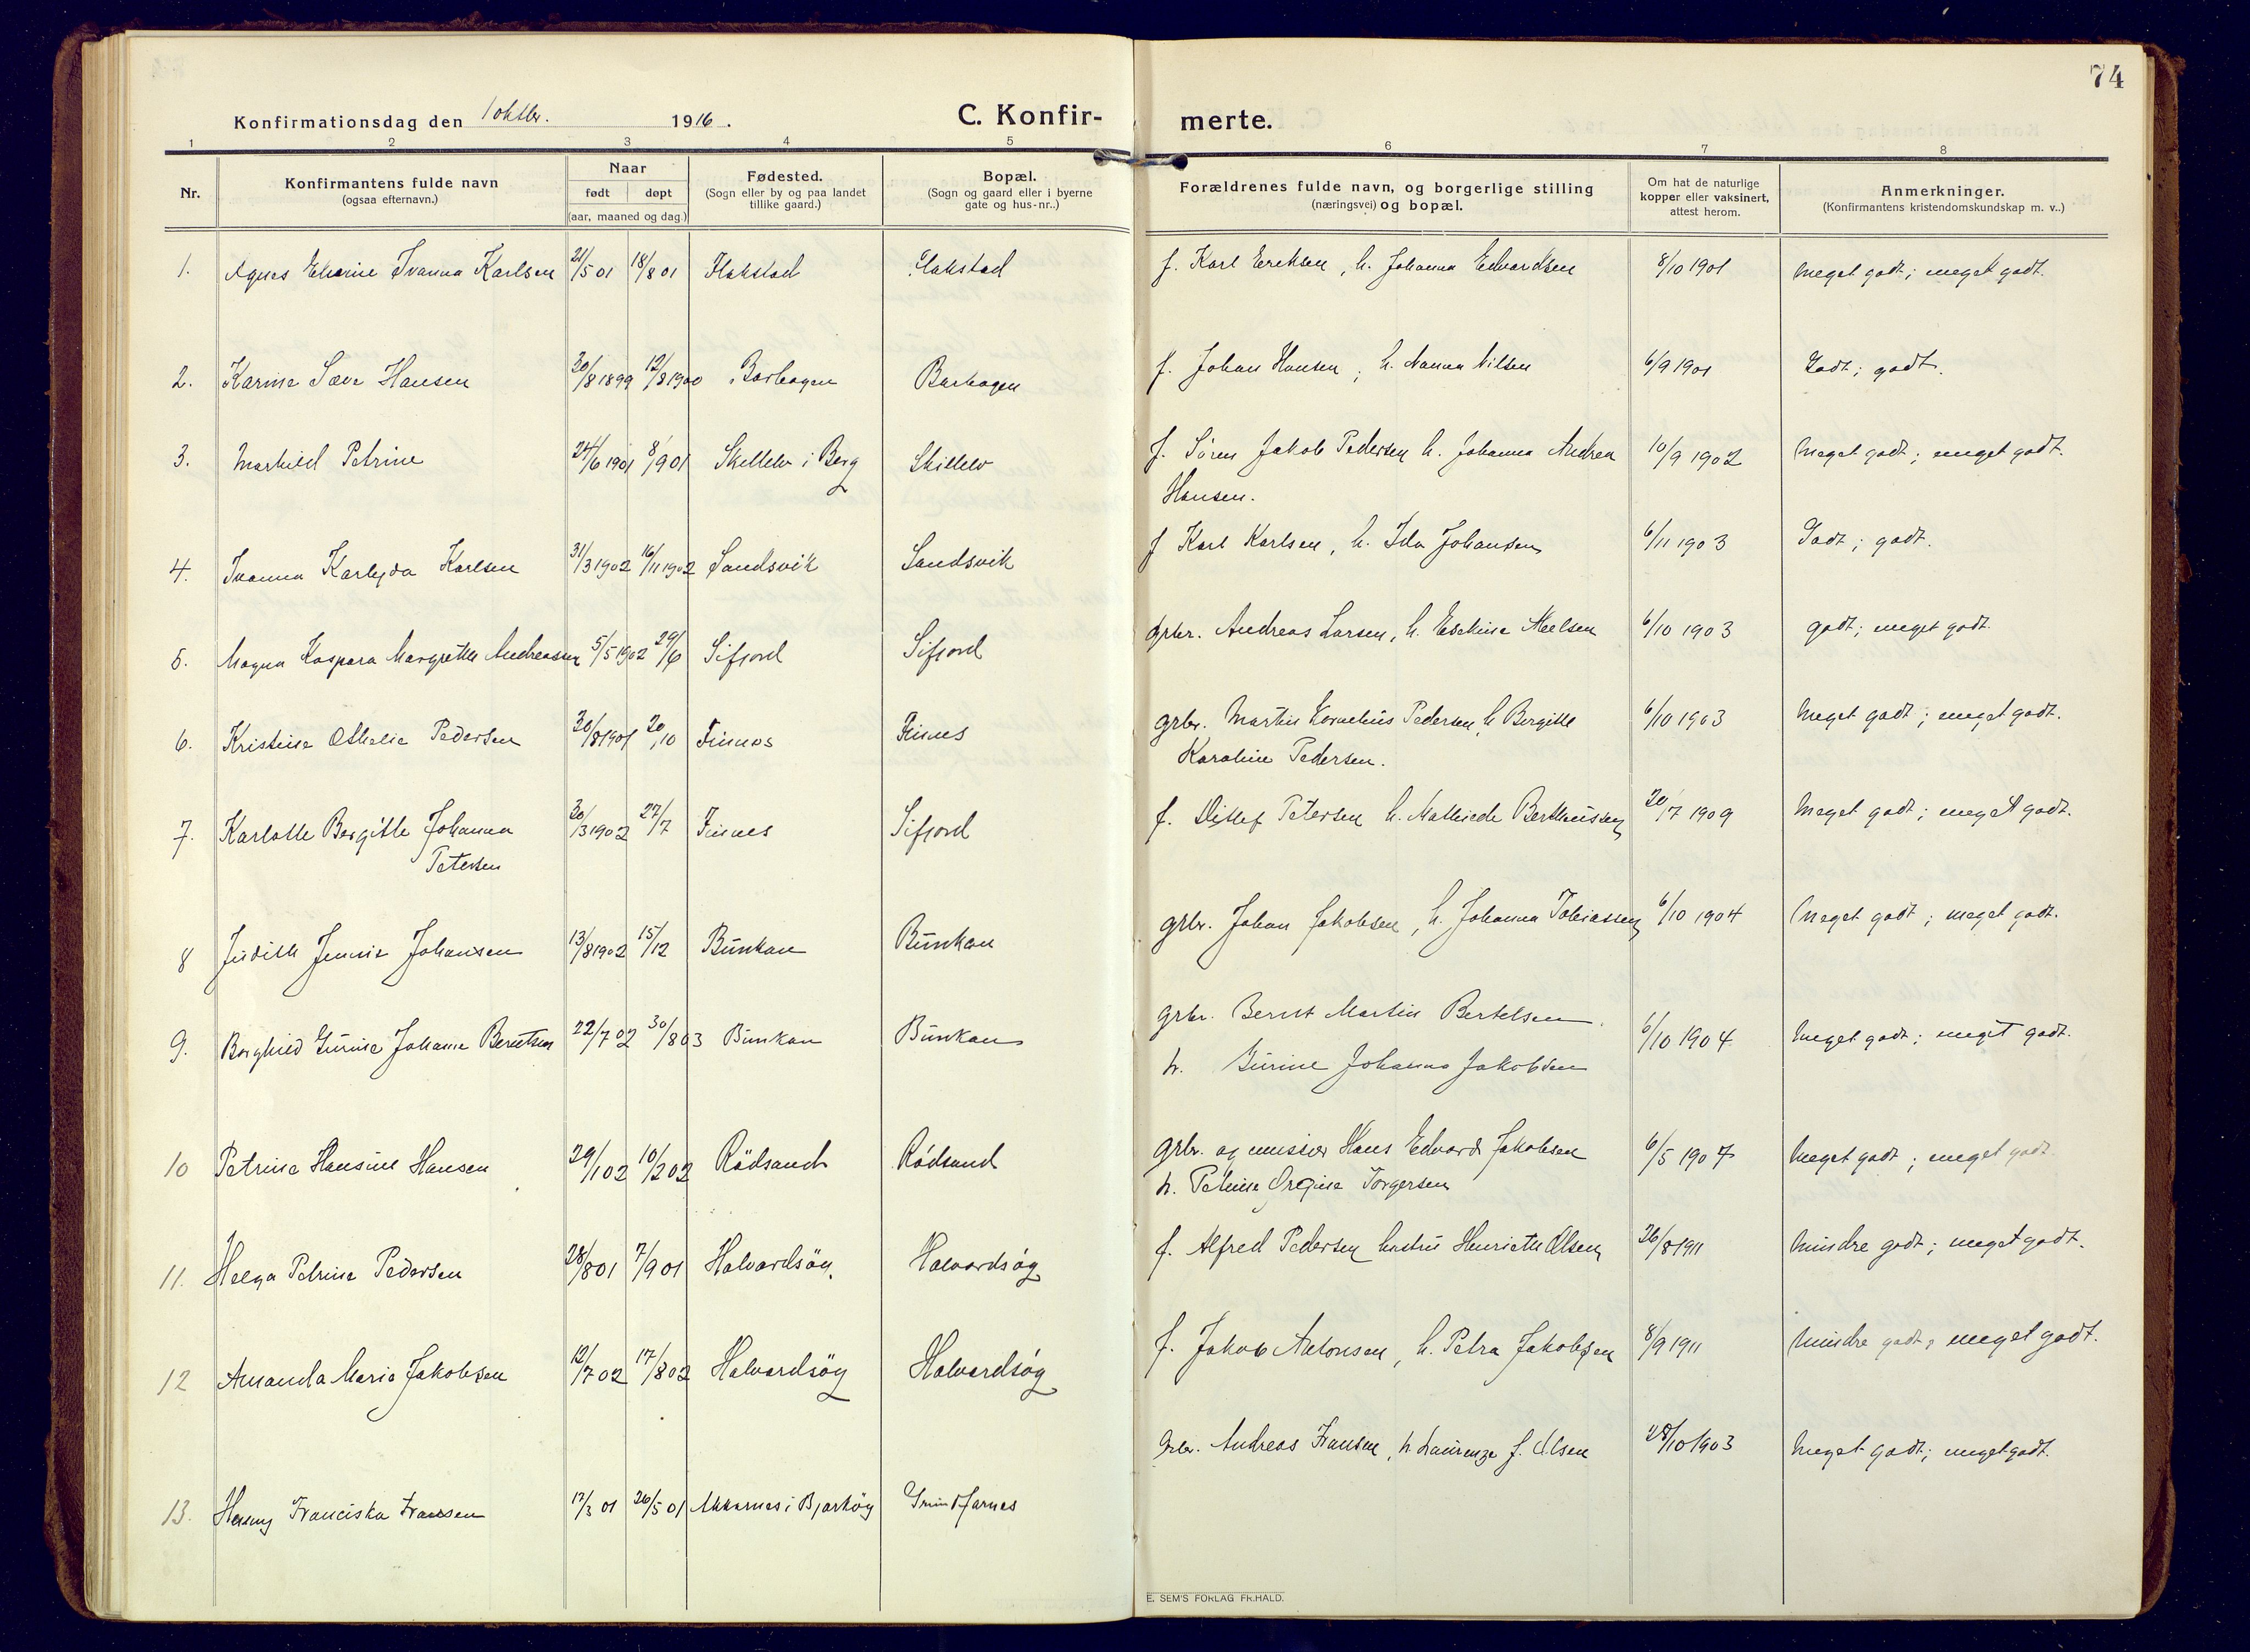 74
Konfirmationsdag den 1 oktbr. 1916.
C. Konfir-
merte.
1 2 3 4 5 6 7 8
Nr.
Konfirmantens fulde navn
(ogsaa efternavn.)
Naar
født døpt
(aar, maaned og dag.)
Fødested.
(Sogn eller by og paa landet
tillike gaard.)
Bopæl.
(Sogn og gaard eller i byerne
gate og hus-nr..)
Forældrenes fulde navn, og borgerlige stilling
(næringsvei) og bopæl.
Om hat de naturlige
kopper eller vaksinert,
attest herom.
Anmerkninger.
(Konfirmantens kristendomskundskap m. v..)
1. Agnes Ivanna Karlsen 21/5 01 18/8 01 Flakstad Flakstad f. Karl Eriksen, h. Johanna Edvardsen 8/10 1901 Meget godt; meget godt.
2. Karine Hansen 30/8 1899 12/8 1900 f. Johan Hansen; h. Nanna Nilsen 6/9 1901 Godt; godt.
3. Petrine 24/6 1901 8/9 01 Skillelv i Berg Skillelv f. Sören Jakob Pedersen h. Johanna Andrea 10/9 1902 Meget godt; meget godt.
Hansen.
4. Ivanna Karlsen 31/3 1902 16/11 1902 Sandsvik Sandsvik f Karl Karlsen, h. Ida Johansen 6/11 1903 Godt; godt.
5. Magna Kaspara Margrethe Andreassen 5/5 1902 29/6 Sifjord Sifjord grbr. Andreas Larsen, h. 6/10 1903 godt; meget godt.
6. Kristine Othelie Pedersen 30/8 1901 20/10 Finnes Finnes grbr. Martin Kornelius Pedersen, h Bergitte 6/10 1903 Meget godt; meget godt.
Karoline Pedersen.
7. Karlotte Bergitte Johanna 30/3 1902 27/7 Finnes Sifjord f. Ditlef Petersen h. Bertheussen 20/7 1909 Meget godt; meget godt.
Petersen
8 Judith Jennie Johansen 13/8 1902 15/12 Bunkan Bunkan grbr. Johan Jakobsen, h. Johanna Tobiassen 6/10 1904 Meget godt; meget godt.
grbr. Bernt Martin Bertelsen
9. Borghild Gurine Johanne Berntsen 22/7 02 30/8 03 Bunkan Bunkan 6/10 1904 Meget godt; meget godt.
h. Gurine Johanna Jakobsen
10 Petrine Hansine Hansen 29/1 02 10/2 02 Rödsand Rödsand grbr. og Hans Edvard Jakobsen 6/5 1904 Meget godt; meget godt
h. Petrine Torgersen
11. Helga Petrine Pedersen 28/8 01 7/9 01 Halvardsöy Halvardsöy f. Alfred Pedersen hustru Henriette Olsen 26/8 1911 Mindre godt; meget godt.
12 Amanda Marie Jakobsen 12/7 02 17/8 02 Halvardsöy Halvardsöy f. Jakob Antonsen, h. Petra Jakobsen 8/9 1911 Mindre godt; meget godt.
13. Franciska Fransen 17/3 01 26/5 01 Akkarnes i Bjarköy Grbr. Andreas Fransen, h J. Olsen 28/10 1903 Meget godt; meget godt.
E. SEM'S FORLAG FR.HALD.